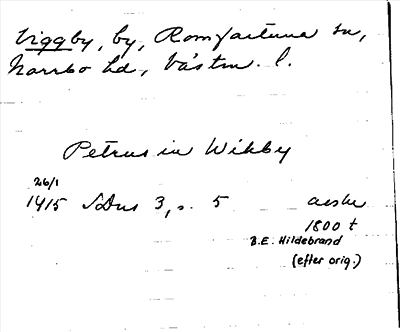 Viggby, by, Romfartuna sn,
Norrbo hd, Västm. l.
Petrus in Wikby
26/1
1415 SDns 3, s. 5 avskr
1800 t
B.E. Hildebrand
(efter orig.)